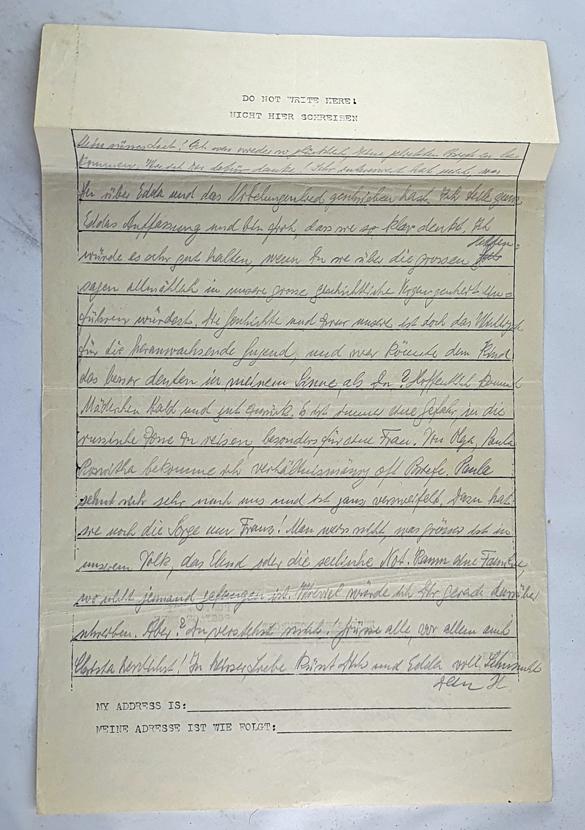 DO NOT WRITE HERE!
NICHT HIER SCHREIBEN
Mein süsses Ich war wieder so glücklich, Deine
kommen. Hab
Du über Edda und das Nibelungenlied geschrieben hast. Ich teile ganz
Eddas Auffassung und bin froh, dass sie so klar denkt. Ich
würde es sehr gut halten, wenn Du sie über die grossen Helden=
sagen allmählich in unsere grosse geschichtliche Vergangenheit ein=
führen würdest. Die Geschichte und zwar unsere ist doch das Wichtigste
für die heranwachsende Jugend, und wer könnte dem Kind
das besser deuten in meinem Sinne, als Du? Hoffentlich kommt
Mädchen bald und gut zurück. Es ist immer eine Gefahr in die
russische Zone zu reisen, besonders für eine Frau. Von Olga, Paula
Roswitha bekomme ich verhältnismässig oft Briefe. Paula
sehnt sich sehr nach uns und ist ganz verzweifelt. Dazu hat
sie noch die Sorge um Franz! Man weiss nicht, was grösser ist in
unserem Volk, das Elend oder die seelische Not. Kaum eine Familie,
wo nicht jemand gefangen ist. würde ich Dir gerade darüber
schreiben. Aber? Du verstehst mich! Grüsse alle vor allem auch
herzlichst! In Liebe küsst Dich und Edda voll Sehnsucht
Dein H
MY ADDRESS IS:
MEINE ADRESSE IST WIE FOLGT: